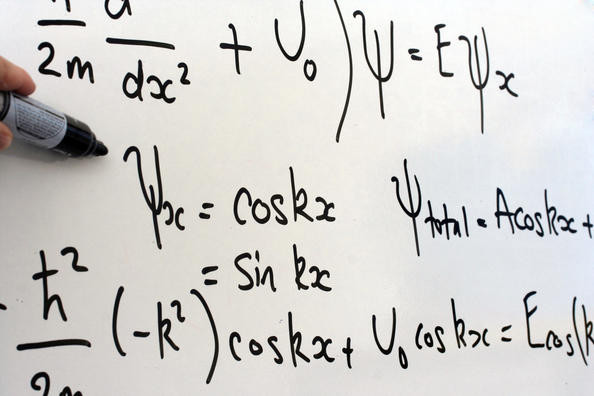 2m d/dx² + U₀) ψ = Eψₓ
ψₓ = cos kx
ψ_total = A cos kx +
= sin kx
- ħ²/2m (-k²) cos kx + U₀ cos kx = E cos(k